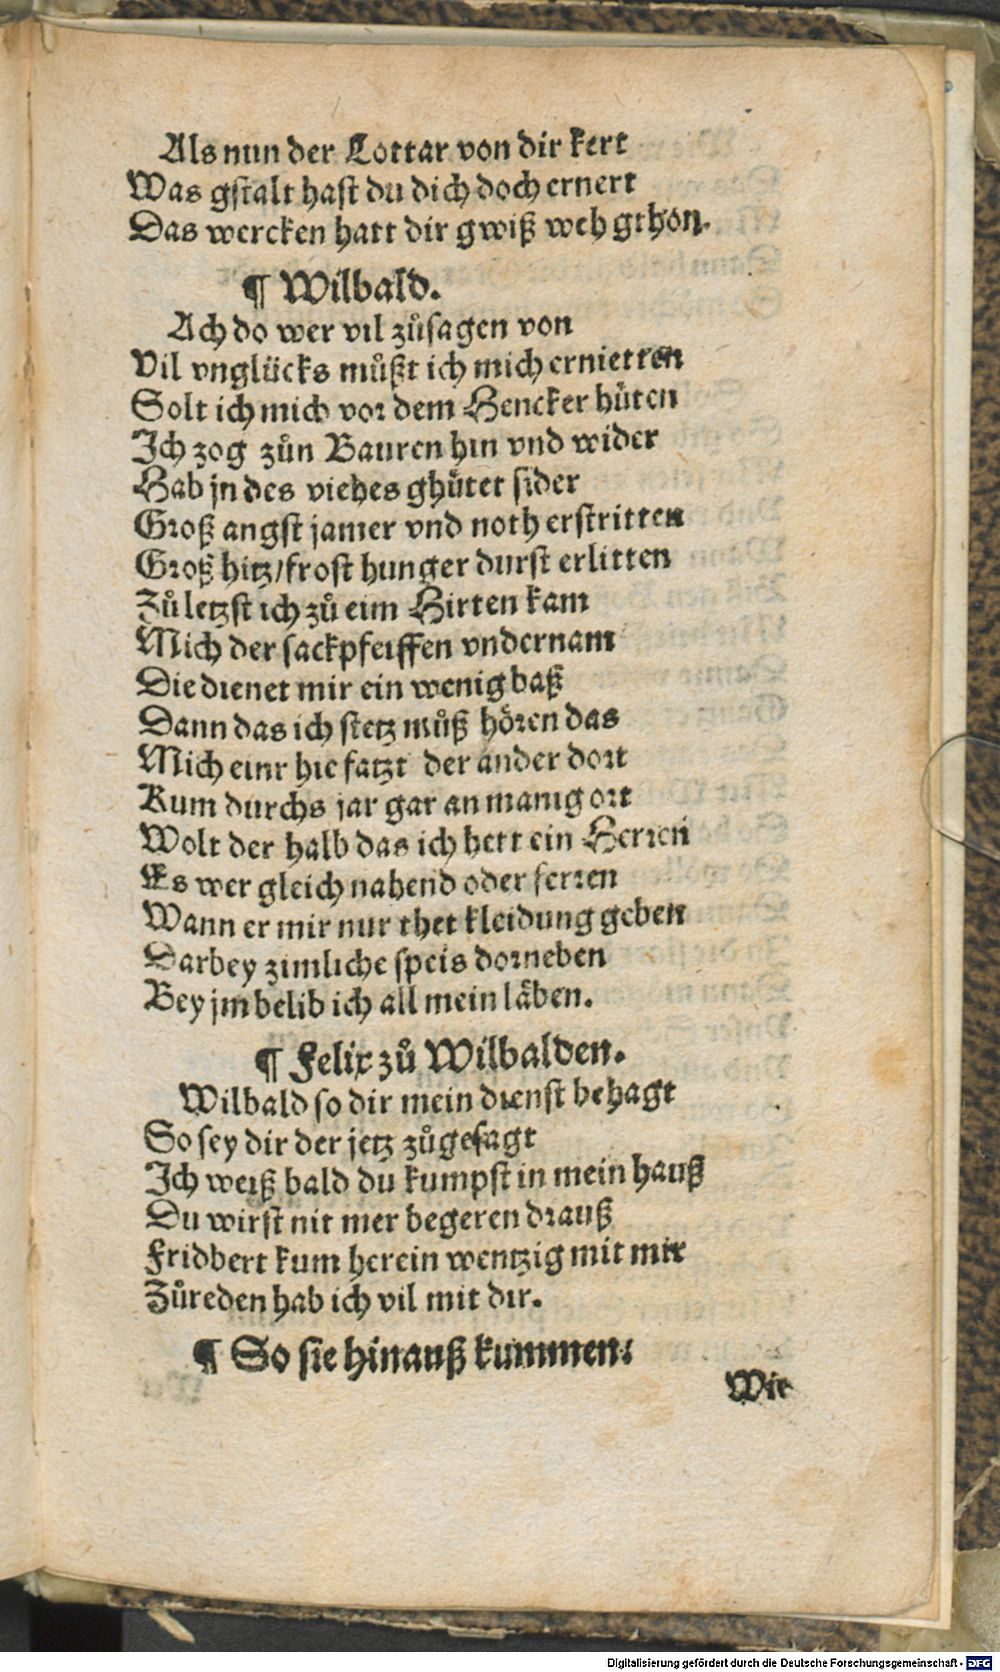 Als nun der Lottar von dir kert
Was gstalt hast du dich doch ernert
Das wercken hatt dir gwiß weh gthon.
¶ Wilbald.
Ach do wer vil zůsagen von
Vil vnglücks můßt ich mich ernietten
Solt ich mich vor dem Hencker hüten
Ich zog zůn Bauren hin vnd wider
Hab jn des viehes ghütet sider
Groß angst jamer vnd noth erstritten
Groß hitz/frost hunger durst erlitten
Zů letzst ich zů eim Hirten kam
Mich der sackpfeiffen vndernam
Die dienet mir ein wenig baß
Dann das ich stetz můß hören das
Mich einr hie fatzt der ander dort
Kum durchs jar gar an manig ort
Wolt der halb das ich hett ein Herren
Es wer gleich nahend oder ferren
Wann er mir nur thet kleidung geben
Darbey zimliche speis dorneben
Bey jm belib ich all mein läben.
¶ Felix zů Wilbalden.
Wilbald so dir mein dienst behagt
So sey dir der jetz zůgesagt
Ich weiß bald du kumpst in mein hauß
Du wirst nit mer begeren drauß
Fridbert kum herein wentzig mit mir
Zůreden hab ich vil mit dir.
¶ So sie hinauß kummen:
Wir
Digitalisierung gefördert durch die Deutsche Forschungsgemeinschaft - DFG